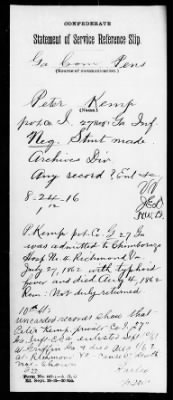 CONFEDERATE
Statement of Service Reference Slip.
Ga Com Pens
(Source of communication.)
Peter Kemp
pvt. Co I. 27 Reg. Ga Inf.
Neg. Stmt made.
Archives Div
Any record?
8-24-16
P. Kemp pvt. Co G 27 Ga
was admitted to Chimborazo
Hosp No 4 Richmond Va
July 27, 1862 with typhoid
fever and died Aug 4, 1862
Rem: Not duly returned
uncarded records show that
Peter Kemp private Co G 27th
Ga Inf C.S.A enlisted Sept
at Griffin Ga & died
at Richmond Va cause of death
not shown